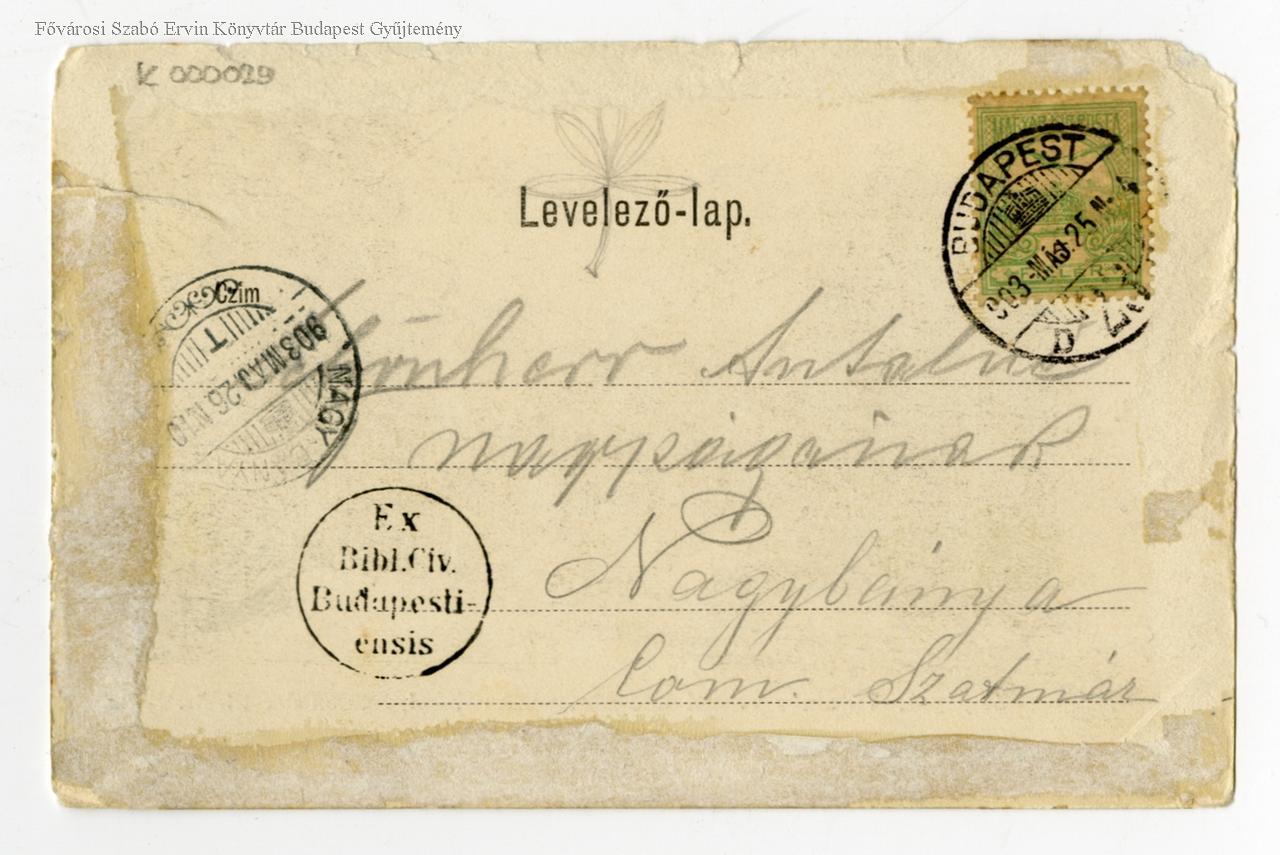 Fővárosi Szabó Ervin Könyvtár Budapest Gyűjtemény
K 000029
Levelező-lap.
MAGYAR KIR. POSTA
BUDAPEST
903 MÁJ. 25 N.
D
Czim
903 MÁJ. 26 N. 10
T
NAGY
Schönherr Antalné
nagyságának
Nagybánya
Com. Szatmár
Ex
Bibl. Civ.
Budapesti-
ensis